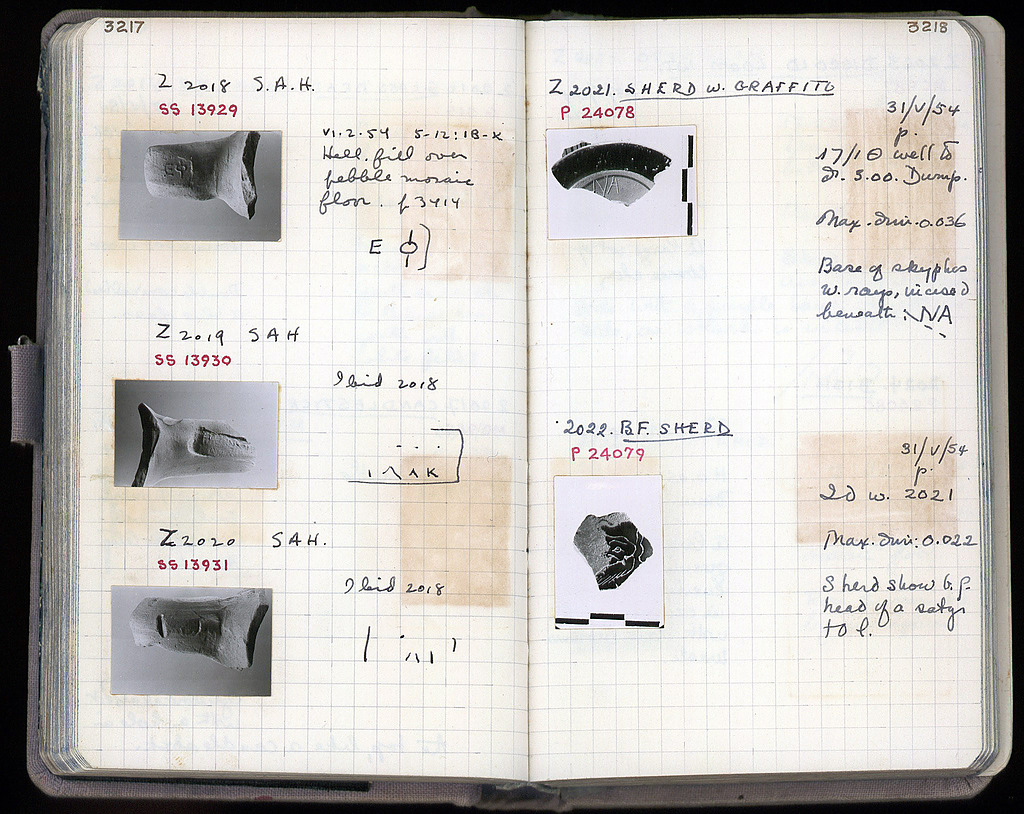 3217
Z 2018 S.A.H.
SS 13929
VI.2.54 5-12:18-X
Hell. fill over
pebble mosaic
floor. p 3414
E ϕ
Z 2019 SAH
SS 13930
Ibid 2018
Z 2020 SAH.
SS 13931
Ibid 2018
3218
Z 2021. SHERD W. GRAFFITO
P 24078
NA
31/V/54
p.
17/10 well to
3.00. Dump.
Max. dim. 0.036
Base of skyphos
w. rays, incised
beneath: NA
2022. B.F. SHERD
P 24079
31/V/54
p.
ID w. 2021
Max. dim: 0.022
Sherd show b.f.
head of a satyr
to l.